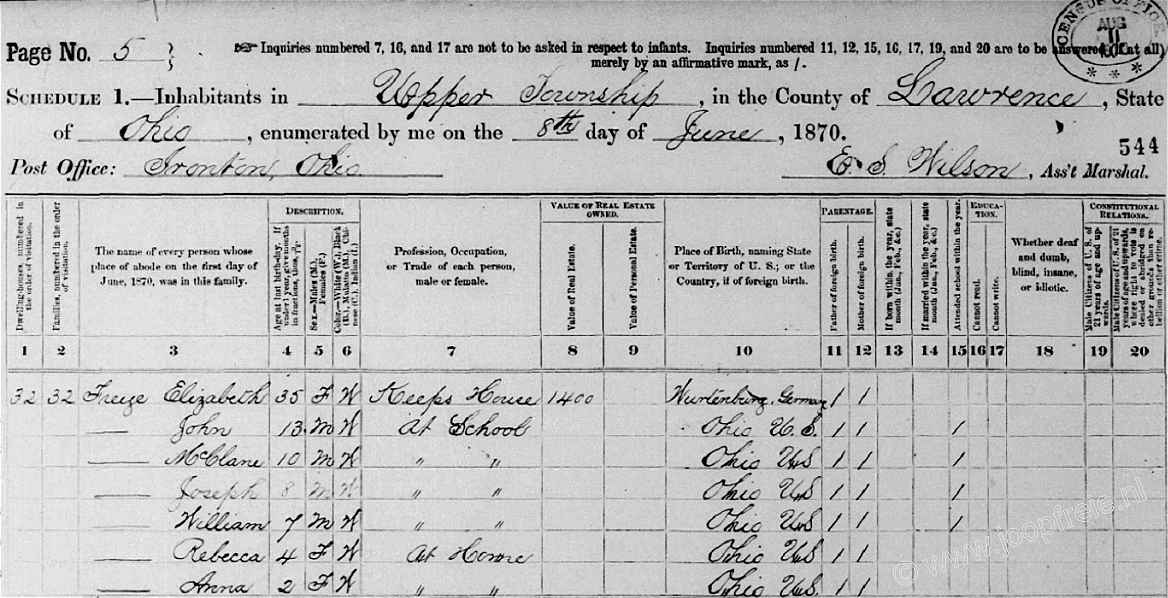 Page No. 5 }
☞ Inquiries numbered 7, 16, and 17 are not to be asked in respect to infants. Inquiries numbered 11, 12, 15, 16, 17, 19, and 20 are to be answered (if at all)
merely by an affirmative mark, as /.
CENSUS OFFICE
AUG
11
* * *
SCHEDULE 1.—Inhabitants in Upper Township, in the County of Lawrence, State
of Ohio, enumerated by me on the 8th day of June, 1870.
544
Post Office: Ironton, Ohio E. S. Wilson, Ass't Marshal.
Dwelling-houses, numbered in the order of visitation.
Families, numbered in the order of visitation.
The name of every person whose
place of abode on the first day of
June, 1870, was in this family.
DESCRIPTION.
Age at last birth-day. If under 1 year, give months in fractions, thus,
Sex.—Males (M.), Females (F.)
Color.—White (W.), Black (B.), Mulatto (M.), Chinese (C.), Indian (I.)
Profession, Occupation,
or Trade of each person,
male or female.
VALUE OF REAL ESTATE
OWNED.
Value of Real Estate.
Value of Personal Estate.
Place of Birth, naming State
or Territory of U. S.; or the
Country, if of foreign birth.
PARENTAGE.
Father of foreign birth.
Mother of foreign birth.
If born within the year, state month (Jan., Feb., &c.)
If married within the year, state month (Jan., Feb., &c.)
Attended school within the year.
EDUCA-
TION.
Cannot read.
Cannot write.
Whether deaf
and dumb,
blind, insane,
or idiotic.
CONSTITUTIONAL
RELATIONS.
Male Citizens of U. S. of 21 years of age and upwards.
Male Citizens of U. S. of 21 years of age and upwards, where right to vote is denied or abridged on other grounds than rebellion or other crime.
1 2 3 4 5 6 7 8 9 10 11 12 13 14 15 16 17 18 19 20
32 32 Freize Elizabeth 35 F W Keeps House 1400 Wurtenburg, Germany / /
—— John 13 M W At School Ohio U.S. / / /
—— McClane 10 M W " " Ohio U.S / / /
—— Joseph 8 M W " " Ohio U.S / / /
—— William 7 M W " " Ohio U.S / / /
—— Rebecca 4 F W At Home Ohio U.S. / /
—— Anna 2 F W " " Ohio U.S. / /
© www.joopfreie.nl